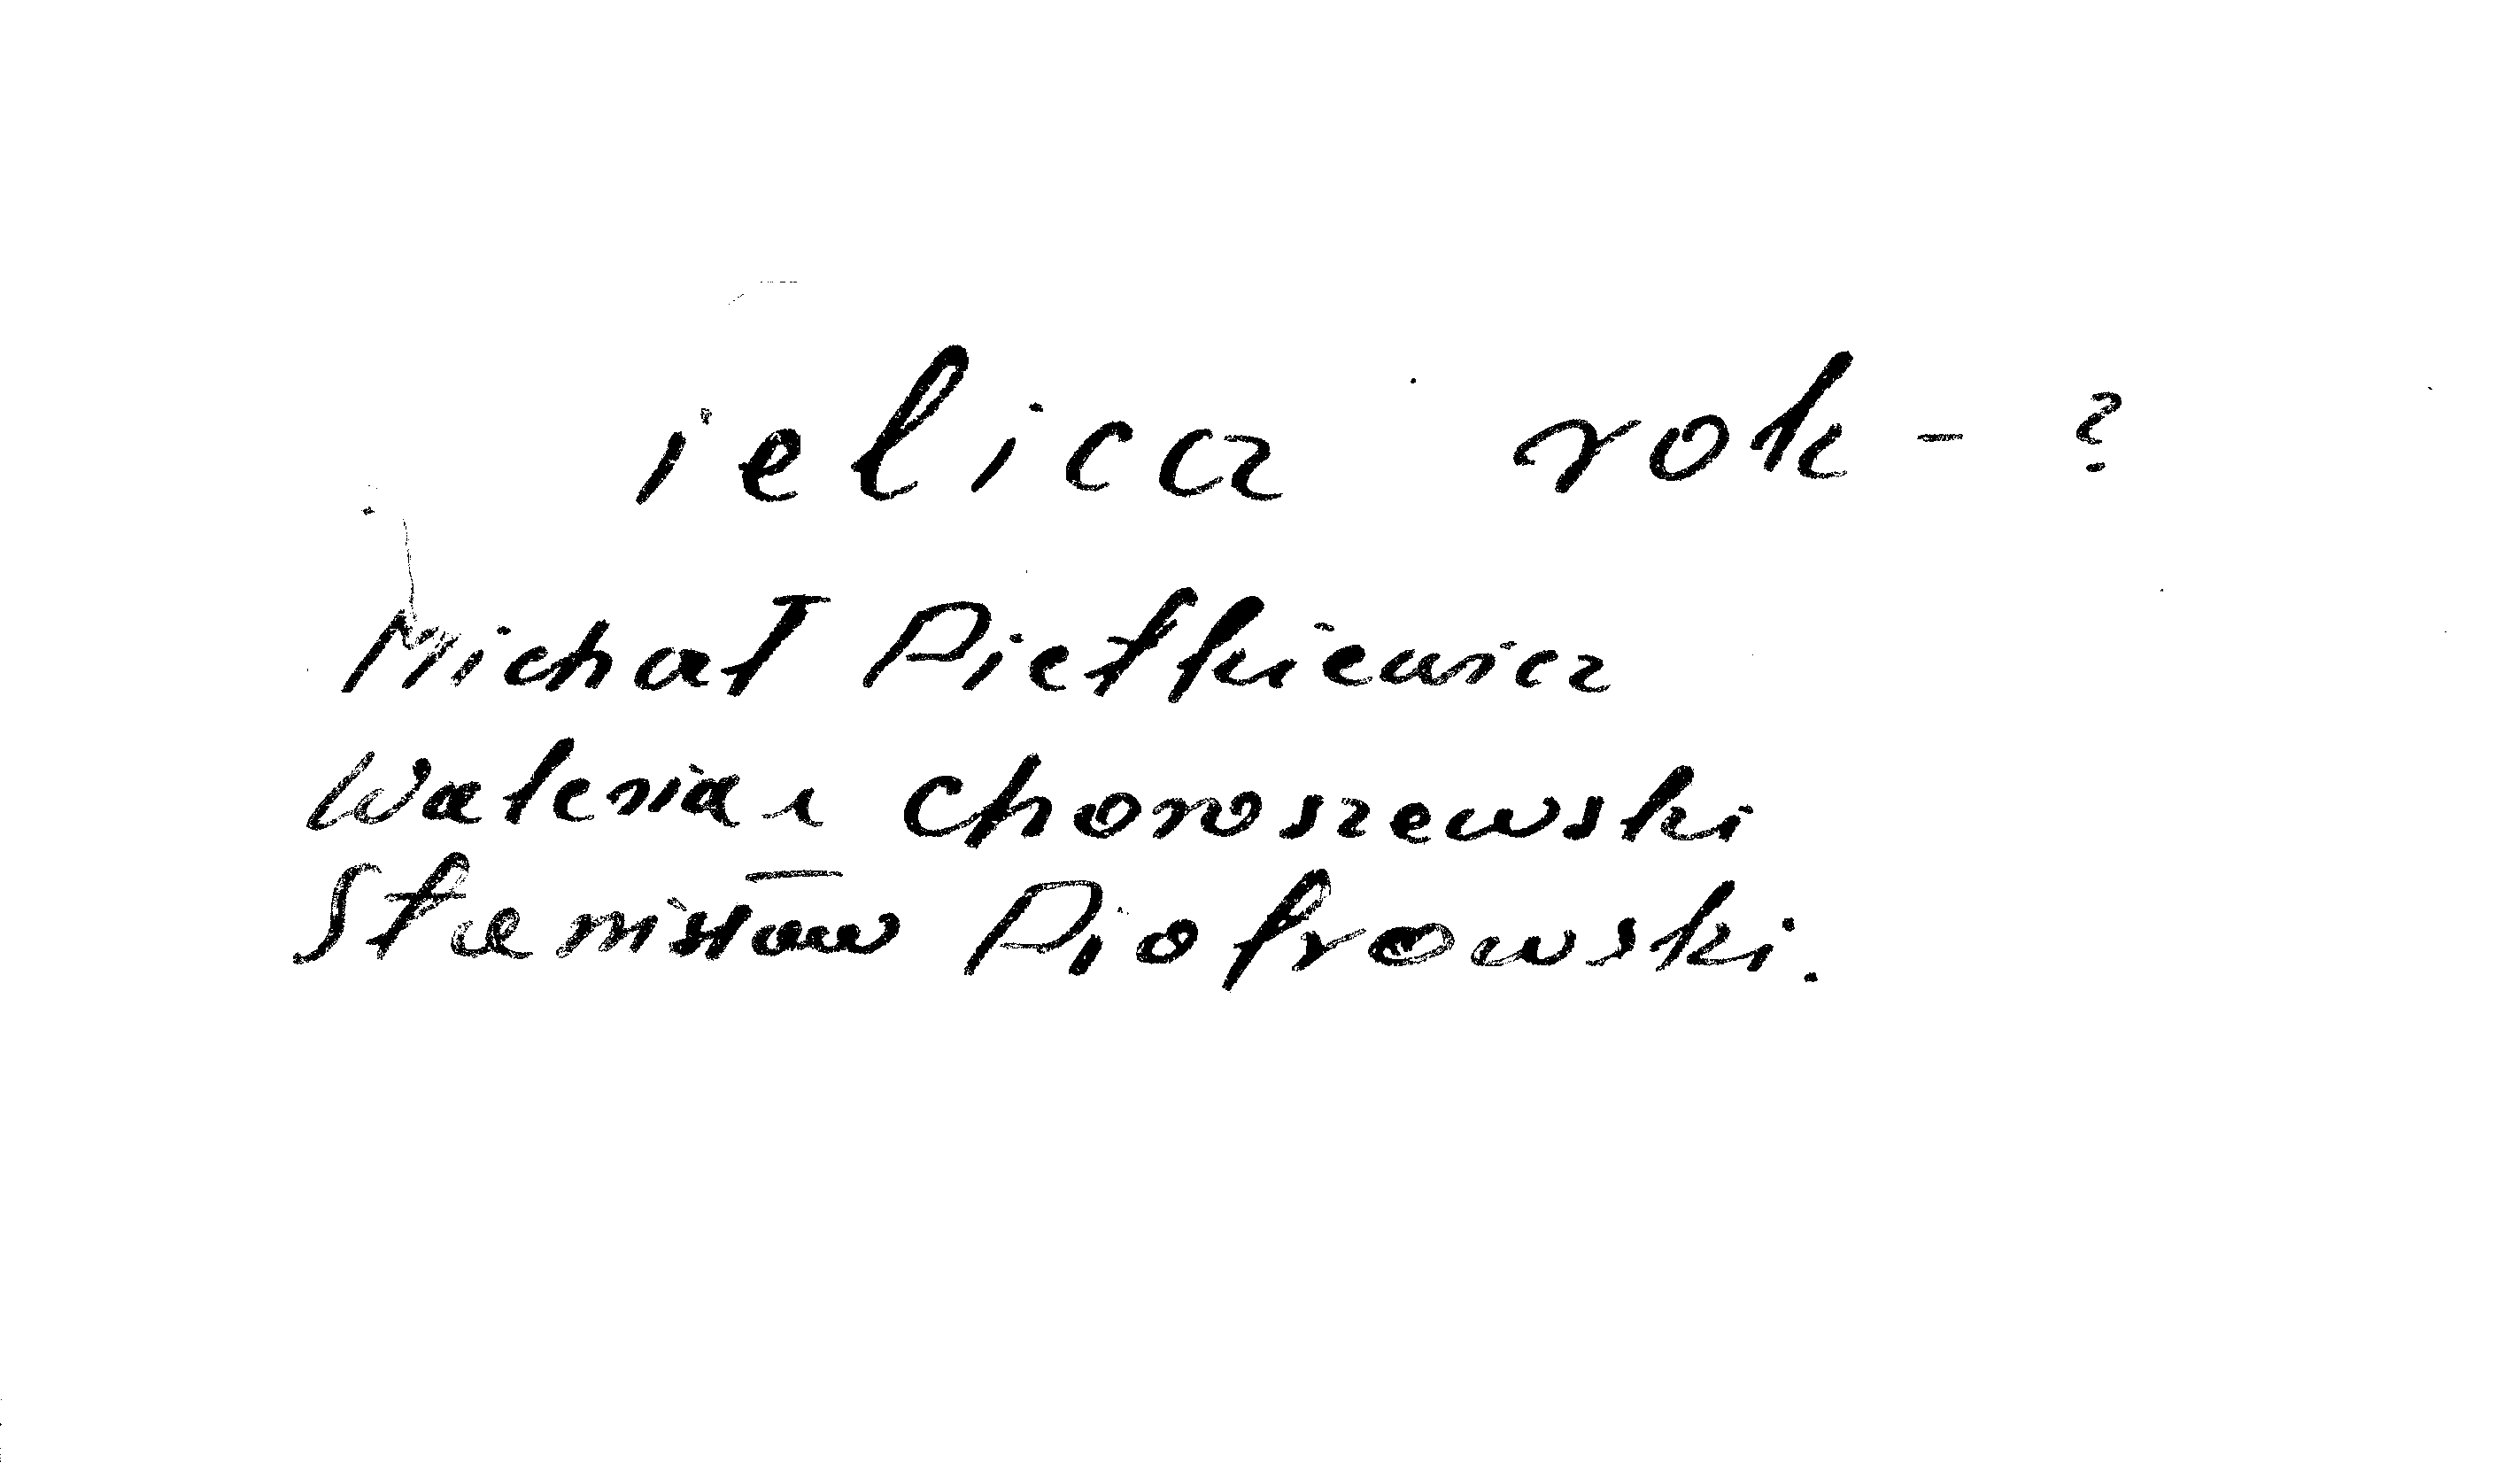 ielicz rok - ?
Michał Pietkiewicz
Walerian Choroszewski
Stanisław Piotrowski.